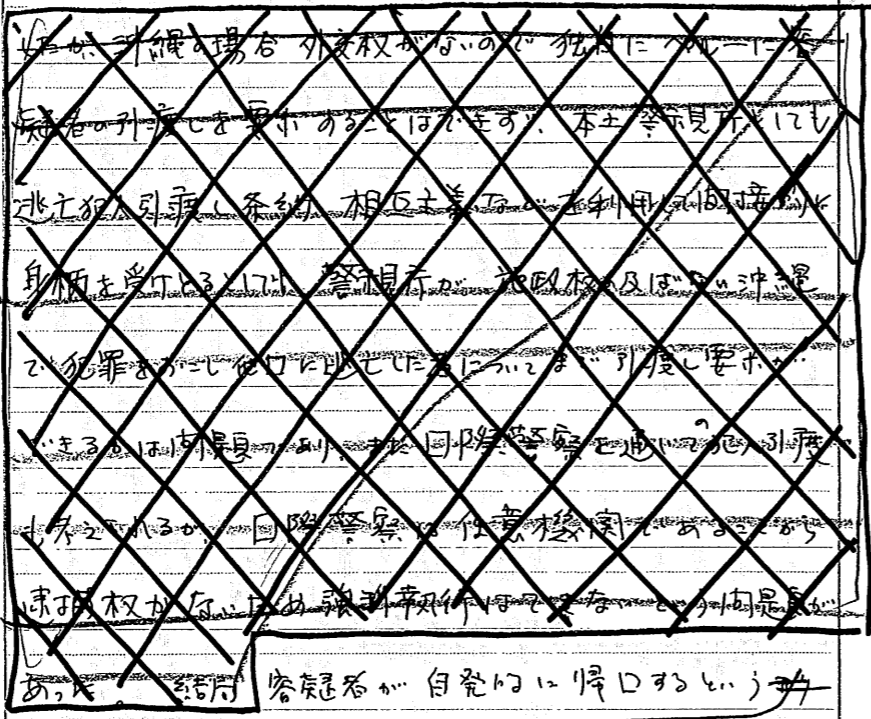 が沖縄の場合 外交権がないので 独自にペルーに容
疑者の引渡しを要求することはできず、本土警視庁としても
逃亡犯人引渡し条約、相互主義などを利用して間接的に
身柄を受けとるとしても 警視庁が 施政権の及ばない沖縄
で犯罪をおこし他国に逃亡した者についてまで引渡し要求が
できるかは問題であり、また国際警察を通じての犯人引渡
も考えられるが、国際警察は任意機関であることから
逮捕権がないため強制執行はできないという問題が
あった。結局 容疑者が自発的に帰国するという